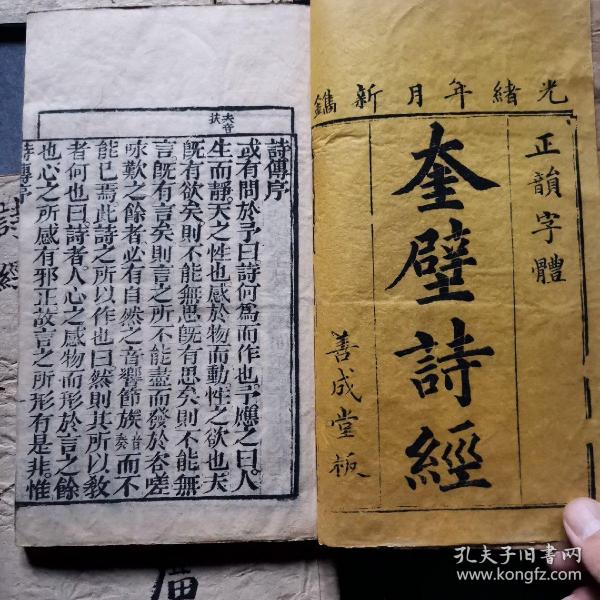 光緒年月新鐫
正韻字體
奎壁詩經
善成堂板
夫音
扶
詩傳序
或有問於予曰詩何為而作也予應之曰人
生而靜天之性也感於物而動性之欲也夫
既有欲矣則不能無思既有思矣則不能無
言既有言矣則言之所不能盡而發於咨嗟
咏歎之餘者必有自然之音響節族音奏而不
能已焉此詩之所以作也曰然則其所以教
者何也曰詩者人心之感物而形於言之餘
也心之所感有邪正故言之所形有是非惟
詩傳序
詩經
廣
孔夫子旧书网
www.kongfz.com